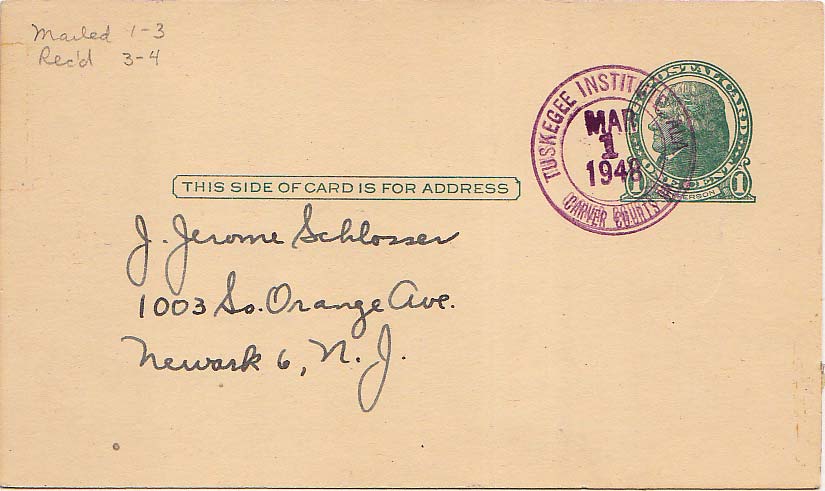 Mailed 1-3
Rec'd 3-4
TUSKEGEE INSTIT
MAR
1
1948
(CARVER COURTS
POSTAL CARD
1 1
THIS SIDE OF CARD IS FOR ADDRESS
J. Jerome Schlosser
1003 So. Orange Ave.
Newark 6, N. J.